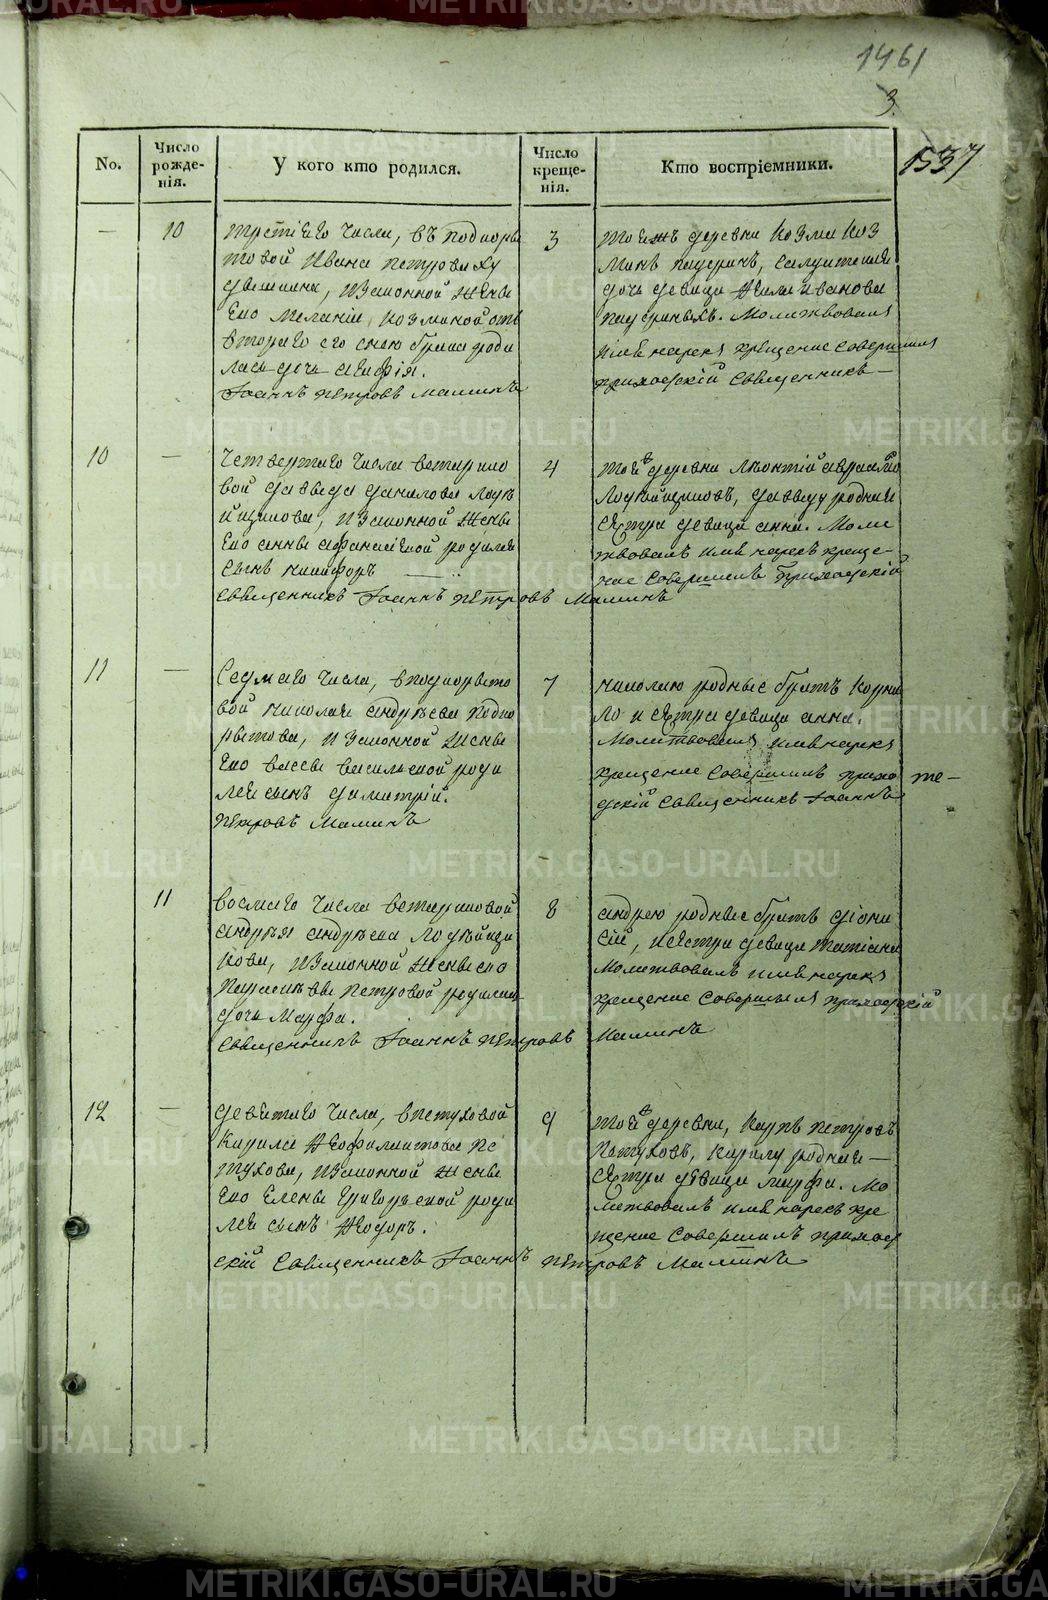 1461
3.
1537
No.
Число рожде-нія.
У кого кто родился.
Число креще-нія.
Кто воспріемники.
— 10
третіего числа, въ подкоры
товой Ивана петрова ху
его меланіи козминой отъ
втораго его сына брата роди
лась дочь
Іоаннъ петровъ маминъ
3
тоежъ деревни козма коз
минъ
дочь девица иванова
молитвовалъ
имя нарекъ крещение совершилъ
приходскій священникъ —
10 —
четвертаго числа
вой давыда данилова
изаконной жены
его анны афанасіевой родился
сынъ никифоръ
священникъ Іоаннъ петровъ маминъ
4
той деревни леонтій
давыду родная
сестра девица анна. моли
твовалъ имя нарекъ креще-
ние совершилъ приходскій
11 —
Седмаго числа, вподкорыто
вой николая андреева подко
рытова, изаконной жены
его васильевой роди
лся сынъ димитрій.
петровъ маминъ
7
николаю родные братъ корни
ло и сестра девица анна.
молитвовалъ имя нарекъ
крещение совершилъ прихо
дскій священникъ Іоаннъ
те—
11
восмаго числа
андрея андреева
изаконной жены его
петровой родилась
дочь марфа.
священникъ Іоаннъ петровъ маминъ
8
андрею родные братъ діони
сій, исестра девица татіана
молитвовалъ имя нарекъ
крещение совершилъ приходскій
12 —
девятаго числа, впетуховой
кирила феофилактова пе
тухова, изаконной жены
его елены григорьевой роди
лся сынъ феодоръ.
скій священникъ Іоаннъ петровъ маминъ
9
той деревни, карпъ петровъ
петуховъ, кирилу родная —
сестра девица марфа. мо
литвовалъ имя нарекъ кре
щение совершилъ приход
METRIKI.GASO-URAL.RU